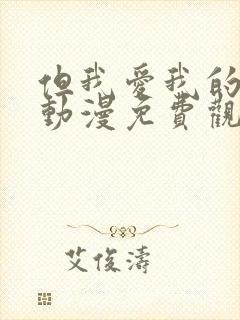 但我愛我的
動漫免費觀
艾俊濤